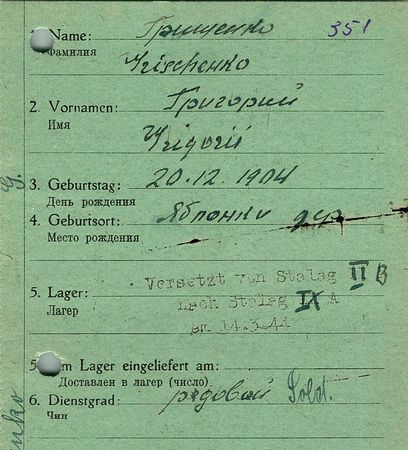 Name: Грищенко 351
Фамилия
Grischenko
2. Vornamen: Григорий
Имя
Grigorii
3. Geburtstag: 20.12.1904
День рождения
4. Geburtsort: Яблонки дер
Место рождения
Versetzt von Stalag II B
5. Lager: nach Stalag IX A
Лагер
am 14.3.44
5. m Lager eingeliefert am:
Доставлен в лагер (число)
6. Dienstgrad: рядовой Sold.
Чин